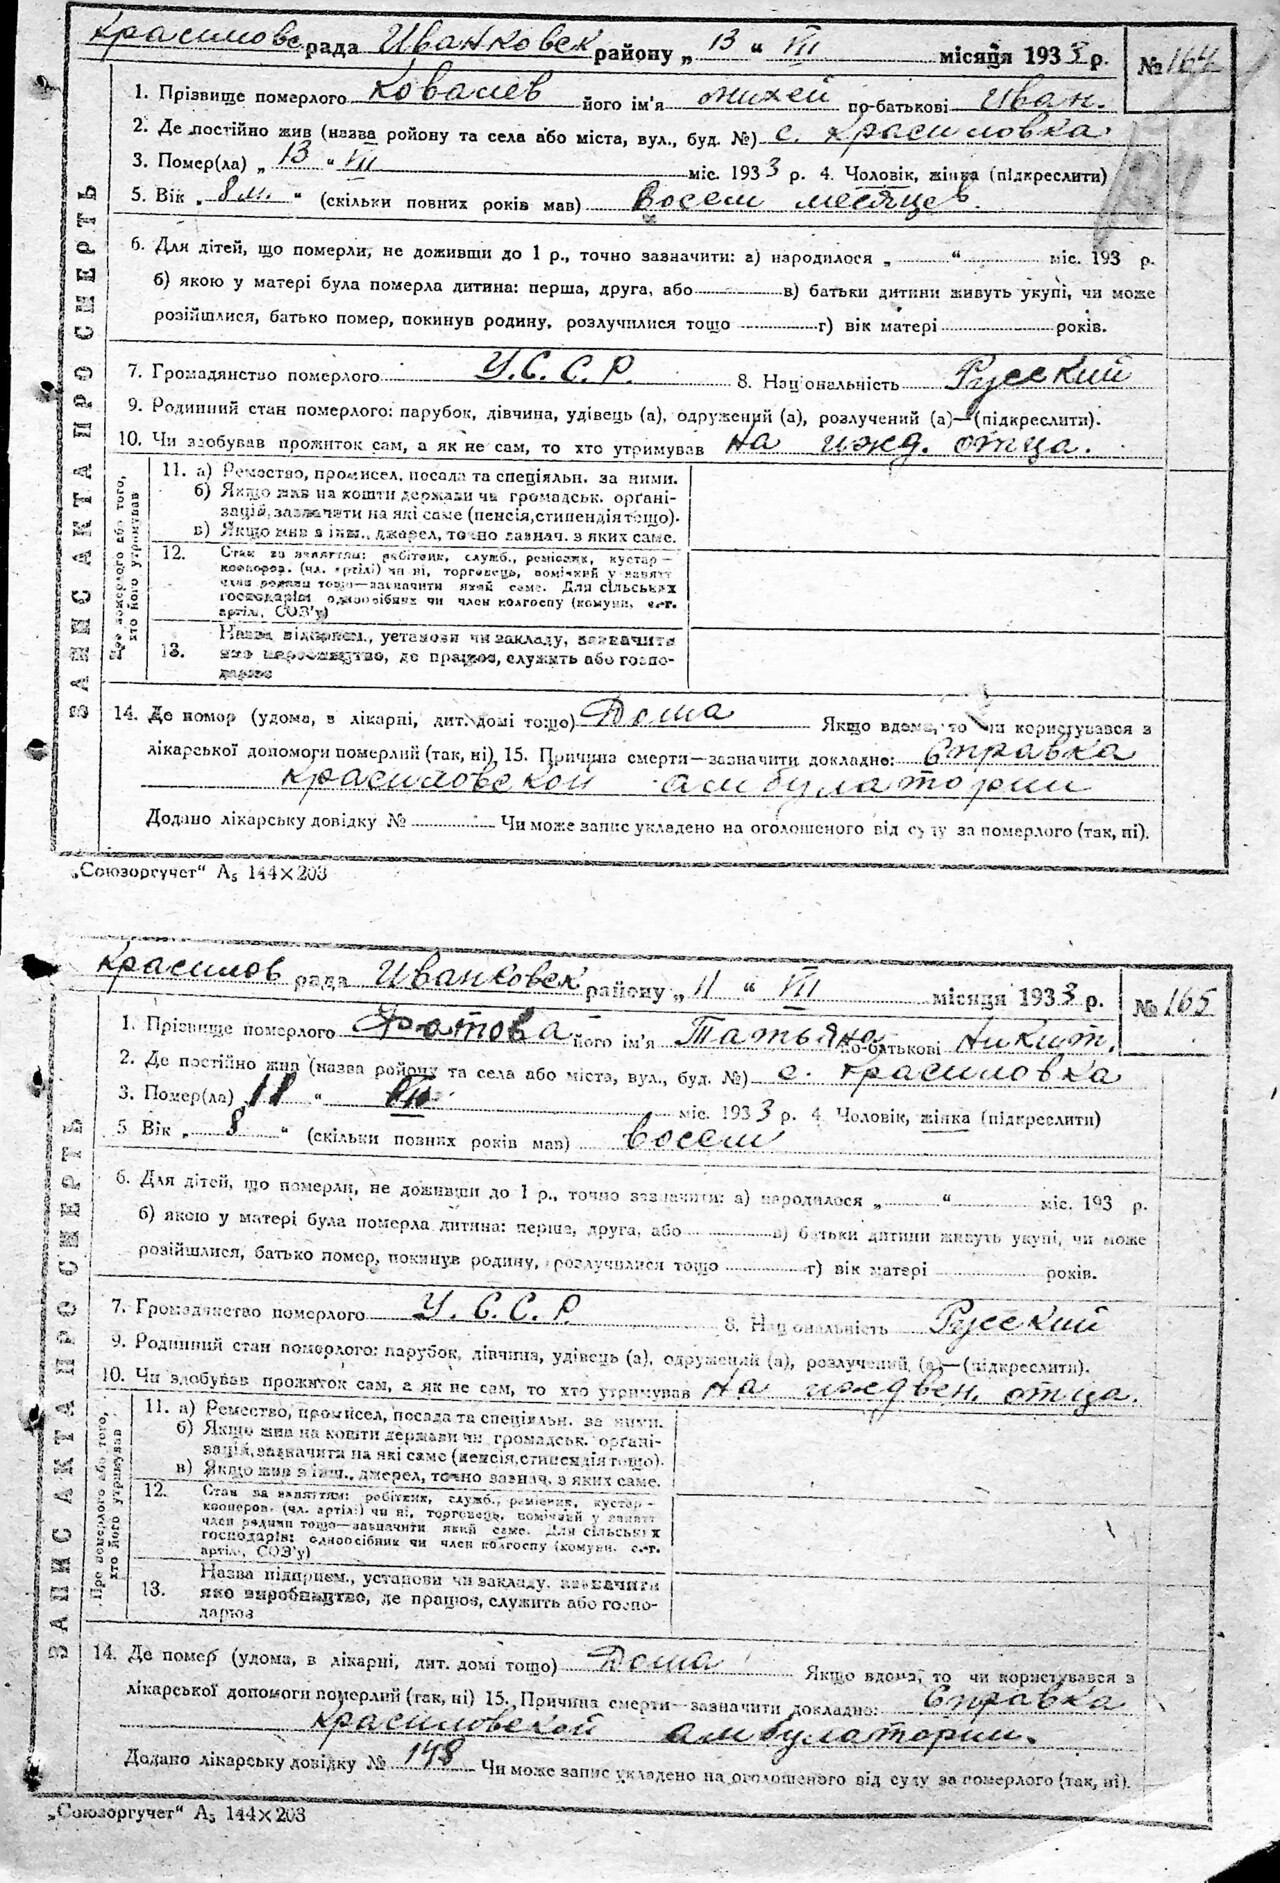 Красиловс рада Иванковск району „ 13 “ VII місяця 1933 р. № 164
1. Прізвище померлого Ковалев його ім'я Михей по-батькові Иван.
2. Де постійно жив (назва ройону та села або міста, вул., буд. №) с. Красиловка
3. Помер(ла) „ 13 “ VII міс. 1933 р. 4. Чоловік, жінка (підкреслити)
5. Вік „ 8 м. “ (скільки повних років мав) Восем месяцев.
6. Для дітей, що померли, не доживши до 1 р., точно зазначити: а) народилося „ “ міс. 193 р.
б) якою у матері була померла дитина: перша, друга, або в) батьки дитини живуть укупі, чи може
розійшлися, батько помер, покинув родину, розлучилися тощо г) вік матері років.
7. Громадянство померлого У.С.С.Р. 8. Національність Русский
9. Родинний стан померлого: парубок, дівчина, удівець (а), одружений (а), розлучений (а)—(підкреслити).
10. Чи здобував прожиток сам, а як не сам, то хто утримував На ижд. отца.
ЗАПИС АКТА ПРО СМЕРТЬ
Про померлого або того, хто його утримував
11. а) Ремество, промисел, посада та спеціяльн. за ними.
б) Якщо жив на кошти держави чи громадськ. органі-
зацій, зазначити на які саме (пенсія, стипендія тощо).
в) Якщо жив з інш. джерел, точно зазнач. з яких саме.
12. Стан за заняттям: робітник, служб., ремісник, кустар—
коопоров. (чл. артілі) чи ні, торговець, помічний у занятт
член родини тощо—зазначити який саме. Для сільських
господарів: одноосібник чи член колгоспу (комуни, с.-г.
артіл., СОЗ'у)
13. Назва підприєм., установи чи закладу, зазначити
яке виробництво, де працює, служить або госпо-
дарює
14. Де помер (удома, в лікарні, дит. домі тощо) Дома Якщо вдома, то чи користувався з
лікарської допомоги померлий (так, ні) 15. Причина смерти—зазначити докладно: Справка
Красиловской амбулатории
Додано лікарську довідку № Чи може запис укладено на оголошеного від суду за померлого (так, ні).
„Союзоргучет“ А₅ 144×203
Красилов рада Иванковск району „ 11 “ VII місяця 1933 р. № 165
1. Прізвище померлого Фатова його ім'я Татьяна по-батькові Никит.
2. Де постійно жив (назва ройону та села або міста, вул., буд. №) с. Красиловка
3. Помер(ла) 11 “ VII міс. 1933 р. 4. Чоловік, жінка (підкреслити)
5 Вік „ 8 “ (скільки повних років мав) восем
6. Для дітей, що померли, не доживши до 1 р., точно зазначити: а) народилося „ “ міс. 193 р.
б) якою у матері була померла дитина: перша, друга, або в) батьки дитини живуть укупі, чи може
розійшлися, батько помер, покинув родину, розлучилися тощо г) вік матері років.
7. Громадянство померлого У.С.С.Р. 8. Національність Русский
9. Родинний стан померлого: парубок, дівчина, удівець (а), одружений (а), розлучений (а)—(підкреслити).
10. Чи здобував прожиток сам, а як не сам, то хто утримував На иждвен. отца.
ЗАПИС АКТА ПРО СМЕРТЬ
Про померлого або того, хто його утримував
11. а) Ремество, промисел, посада та спеціяльн. за ними.
б) Якщо жив на кошти держави чи громадськ. органі-
зацій, зазначити на які саме (пенсія, стипендія тощо).
в) Якщо жив з інш. джерел, точно зазнач. з яких саме.
12. Стан за заняттям: робітник, служб., ремісник, кустар—
кооперов. (чл. артілі) чи ні, торговець, помічний у занятт
член родини тощо—зазначити який саме. Для сільських
господарів: одноосібник чи член колгоспу (комуни, с.-г.
артіл., СОЗ'у)
13. Назва підприєм., установи чи закладу, зазначити
яке виробництво, де працює, служить або госпо-
дарює
14. Де помер (удома, в лікарні, дит. домі тощо) Дома Якщо вдома, то чи користувався з
лікарської допомоги померлий (так, ні) 15. Причина смерти—зазначити докладно: Справка
Красиловской амбулатории.
Додано лікарську довідку № 148 Чи може запис укладено на оголошеного від суду за померлого (так, ні).
„Союзоргучет“ А₅ 144×203